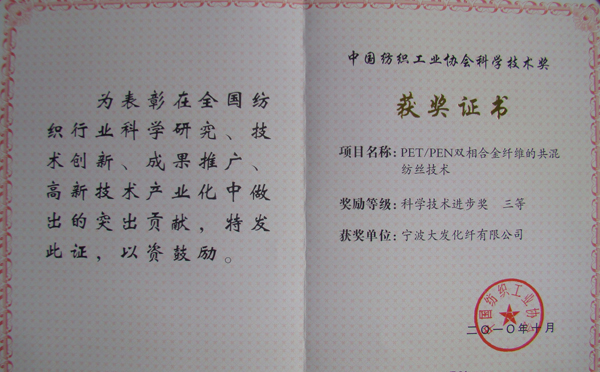 为表彰在全国纺
织行业科学研究、技
术创新、成果推广、
高新技术产业化中做
出的突出贡献，特发
此证，以资鼓励。
中国纺织工业协会科学技术奖
获奖证书
项目名称：PET/PEN双相合金纤维的共混
纺丝技术
奖励等级：科学技术进步奖 三等
获奖单位：宁波大发化纤有限公司
中国纺织工业协会
二〇一〇年十月